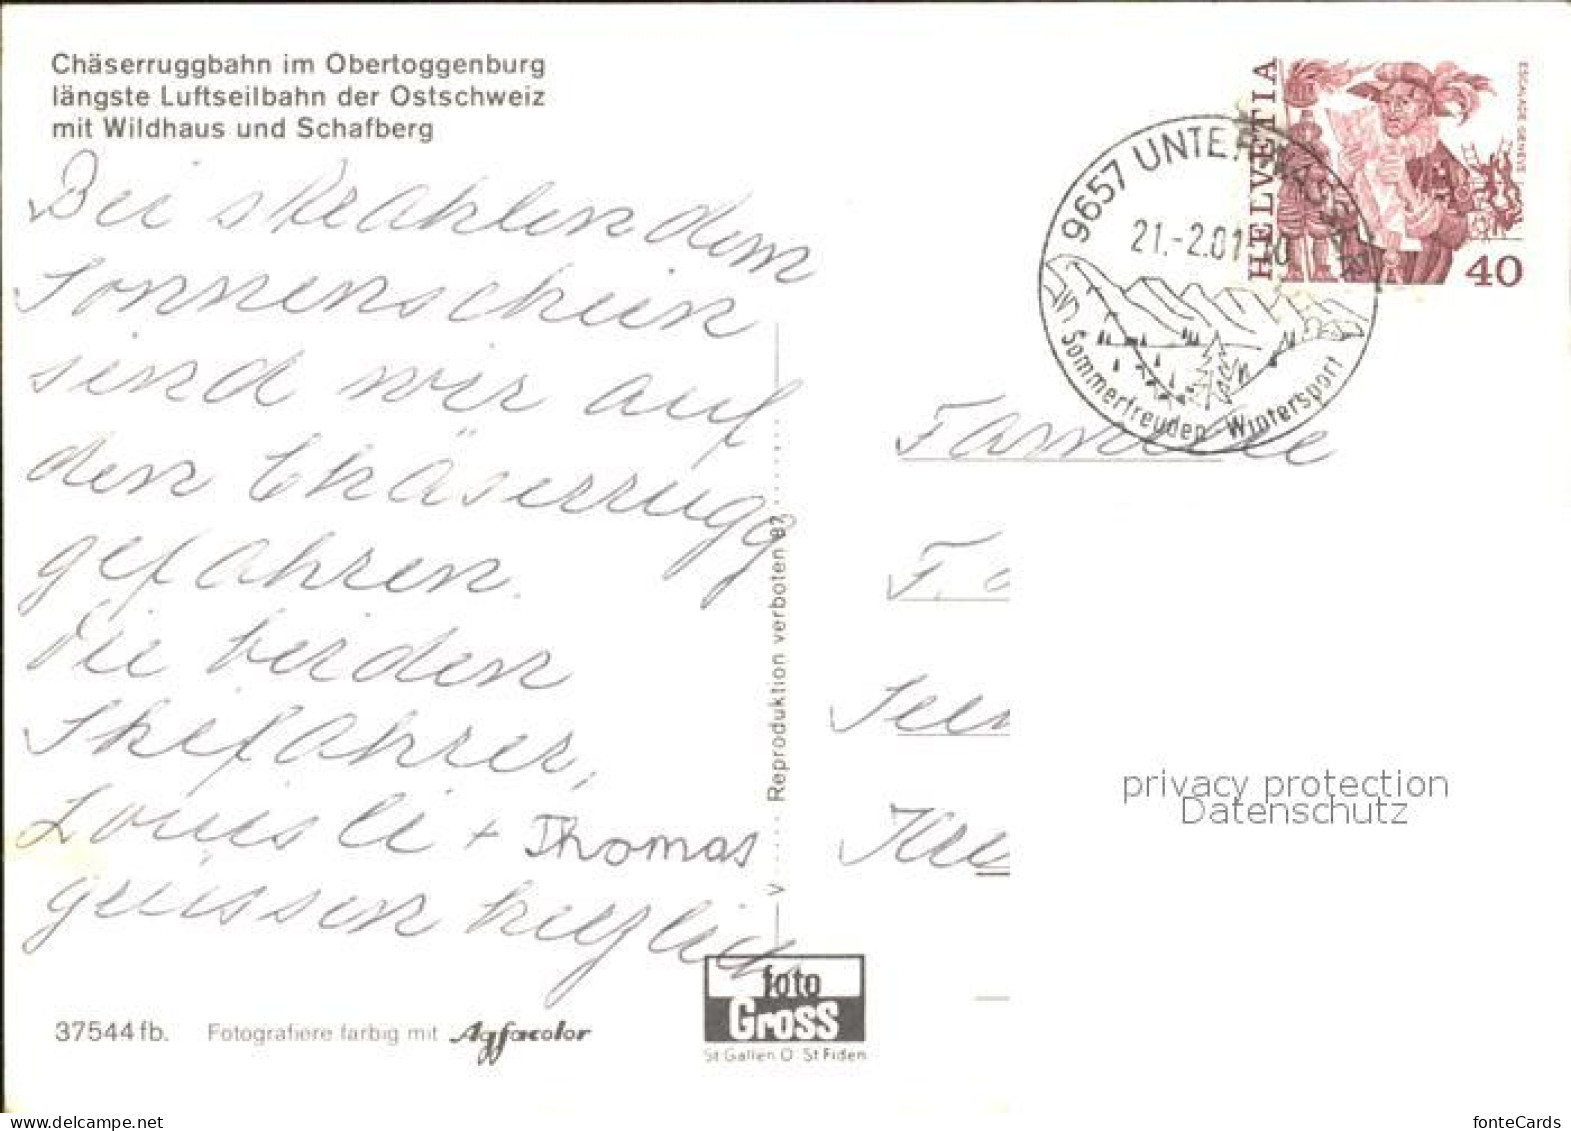 Chäserruggbahn im Obertoggenburg
längste Luftseilbahn der Ostschweiz
mit Wildhaus und Schafberg
Bei strahlendem
Sonnenschein
sind wir auf
den Chäserrugg
gefahren.
Die beiden
Skifahrer,
Louisli + Thomas
grüssen herzlich
37544fb. Fotografiere farbig mit Agfacolor
Reproduktion verboten 87
V
foto
Gross
St Gallen O. St Fiden
HELVETIA
ESCALADE GENÈVE
40
9657 UNTERWASSER
21.-2.01
Sommerfreuden Wintersport
Familie
F.
privacy protection
Datenschutz
www.delcampe.net
fonteCards